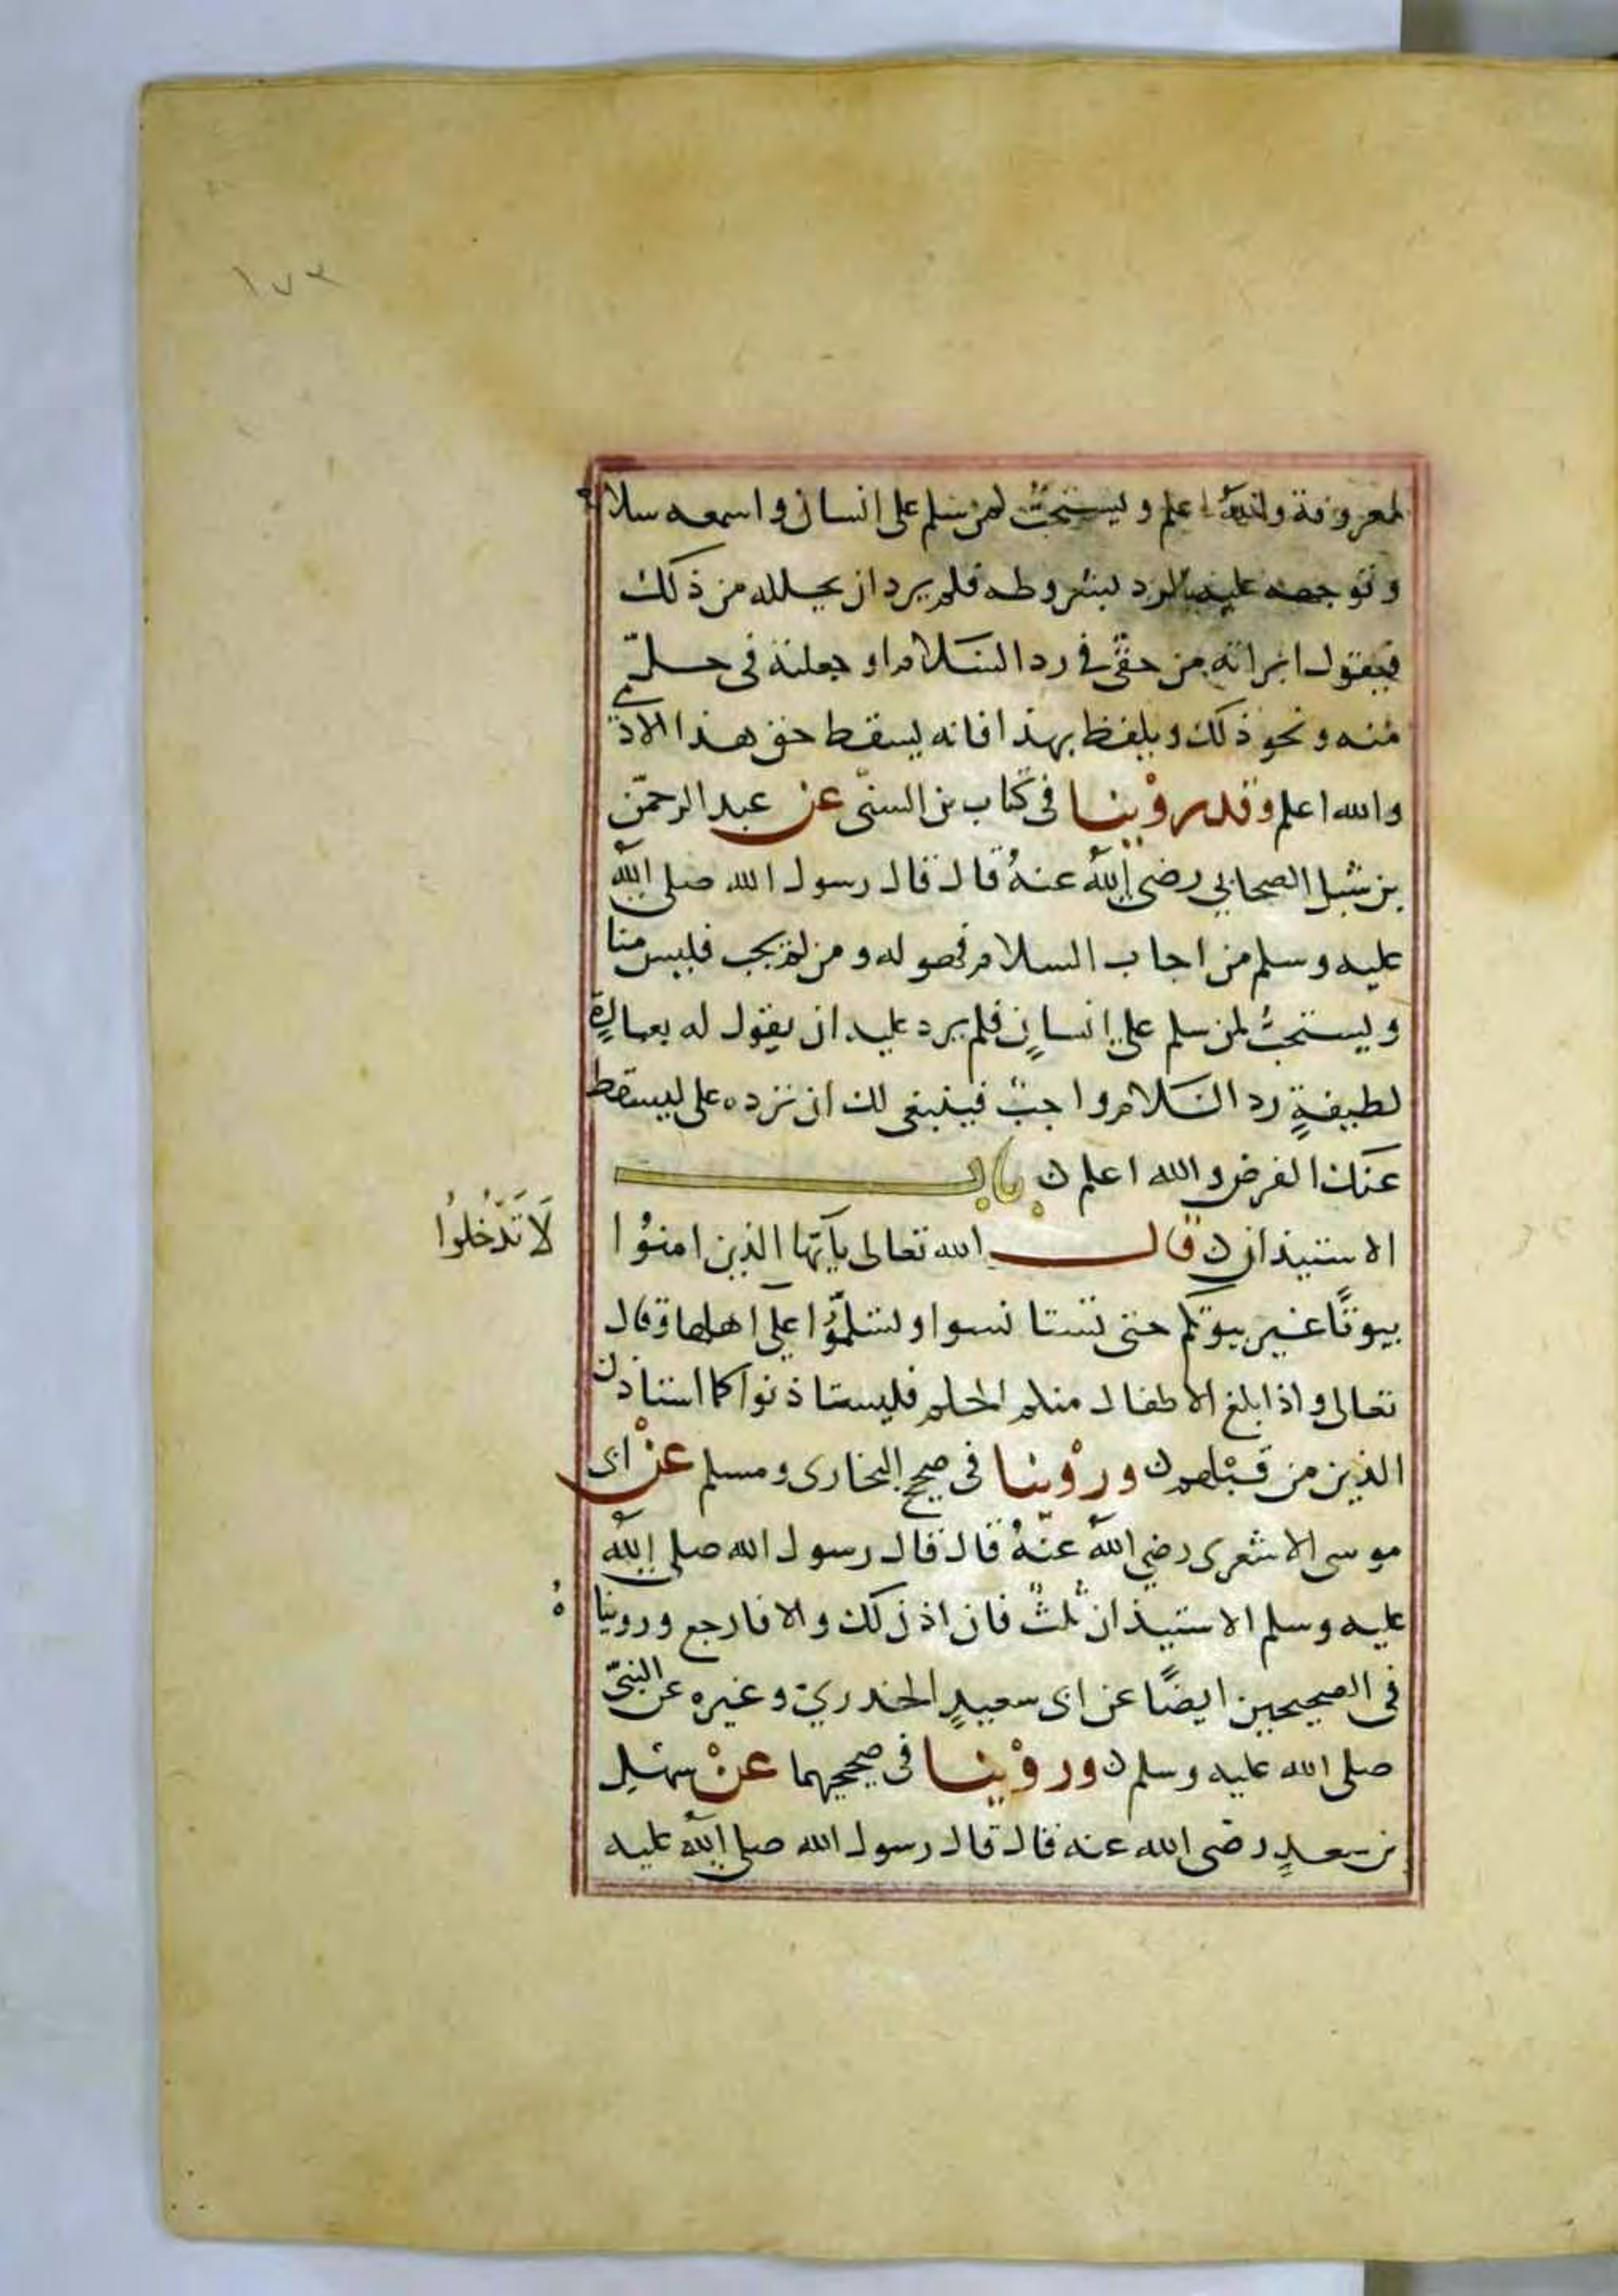 ١٧٣
لمعروفة والله اعلم ويستحبّ لمن سلم على انسان واسمعه سلامه
وتوجه عليه الرد بشروطه فلم يرد ان يحلله من ذلك
فيقول ابرأته من حقي في رد السلام او جعلته في حلّ
منه ونحو ذلك ويلفظ بهذا فانه يسقط حق هذا الادمي
والله اعلم وقد رُوْينا في كتاب بن السنّي عن عبد الرحمن
بن شبل الصحابي رضي الله عنهُ قال قال رسول الله صلى الله
عليه وسلم من اجاب السلام فهو له ومن لم يجب فليس منا
ويستحبُّ لمن سلم على انسانٍ فلم يرد عليه ان يقول له بعبارةٍ
لطيفةٍ رد السَلام واجبٌ فينبغي لك ان ترده على ليسقط
عنك الفرض والله اعلم ن باب
الاستيذان ن قال الله تعالى يآيّها الذين امنُوا
لَا تَدْخُلُوا
بيوتًا غير بيوتكم حتى تستانسوا وتسَلّمُوا على اهلها وقال
تعالى واذا بلغ الاطفال منكم الحلم فليستاذنوا كما استاذن
الذين من قَبْلهم ن ورُوْينا في صحيح البخارى ومسلم عنْ ابى
موسى الاشعرى رضي اللهُ عنهُ قال قال رسول الله صلى اللهُ
عليه وسلم الاستيذان ثلثٌ فان اذن لك والا فارجع وروينا
هُ
في الصحيحين ايضًا عن ابى سعيدٍ الخدريّ وغيره عن النبيّ
صلى الله عليه وسلم ن ورُوْينا في صحيحيهما عنْ سهْلِ
بن سعدٍ رضى الله عنه قال قال رسول الله صلى اللهُ عليه